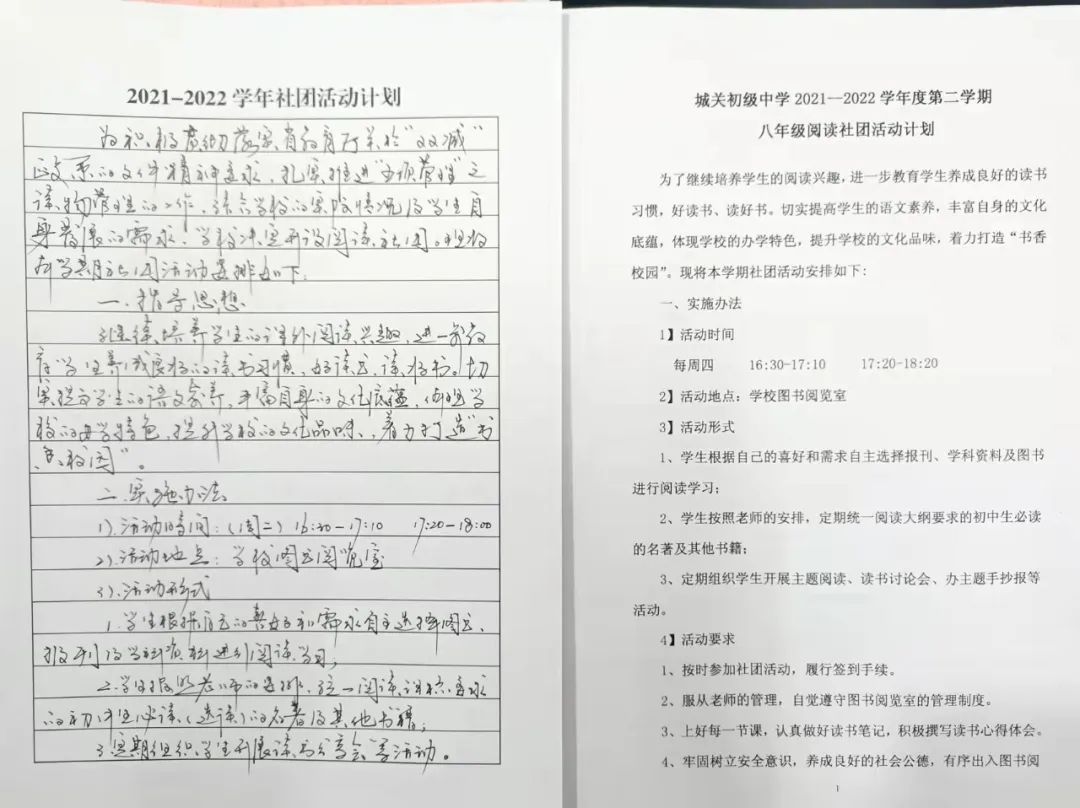 2021-2022 学年社团活动计划
为积极贯彻落实省教育厅关于“双减”
政策的文件精神要求,扎实推进“五项管理”之
读物管理的工作,结合学校的实际情况及学生自
身发展的需求,学校决定开设阅读社团。现将
本学期社团活动安排如下:
一、指导思想
继续培养学生的课外阅读兴趣,进一步教
育学生养成良好的读书习惯,好读书、读好书。切
实提高学生的语文素养,丰富自身的文化底蕴,体现学
校的办学特色,提升学校的文化品味,着力打造“书
香校园”。
二、实施办法
1).活动时间:(周二) 16:30-17:10 17:20-18:00
2).活动地点:学校图书阅览室
3).活动形式
1.学生根据自己的喜好和需求自主选择图书、
报刊及学科资料进行阅读学习;
2.学生按照老师的安排,统一阅读课标要求
的初中生必读(选读)的名著及其他书籍;
3.定期组织学生开展读书分享会等活动。
城关初级中学 2021--2022 学年度第二学期
八年级阅读社团活动计划
为了继续培养学生的阅读兴趣,进一步教育学生养成良好的读书
习惯,好读书、读好书。切实提高学生的语文素养,丰富自身的文化
底蕴,体现学校的办学特色,提升学校的文化品味,着力打造“书香
校园”。现将本学期社团活动安排如下:
一、实施办法
1】活动时间
每周四 16:30-17:10 17:20-18:20
2】活动地点:学校图书阅览室
3】活动形式
1、学生根据自己的喜好和需求自主选择报刊、学科资料及图书
进行阅读学习;
2、学生按照老师的安排,定期统一阅读大纲要求的初中生必读
的名著及其他书籍;
3、定期组织学生开展主题阅读、读书讨论会、办主题手抄报等
活动。
4】活动要求
1、按时参加社团活动,履行签到手续。
2、服从老师的管理,自觉遵守图书阅览室的管理制度。
3、上好每一节课,认真做好读书笔记,积极撰写读书心得体会。
4、牢固树立安全意识,养成良好的社会公德,有序出入图书阅
1